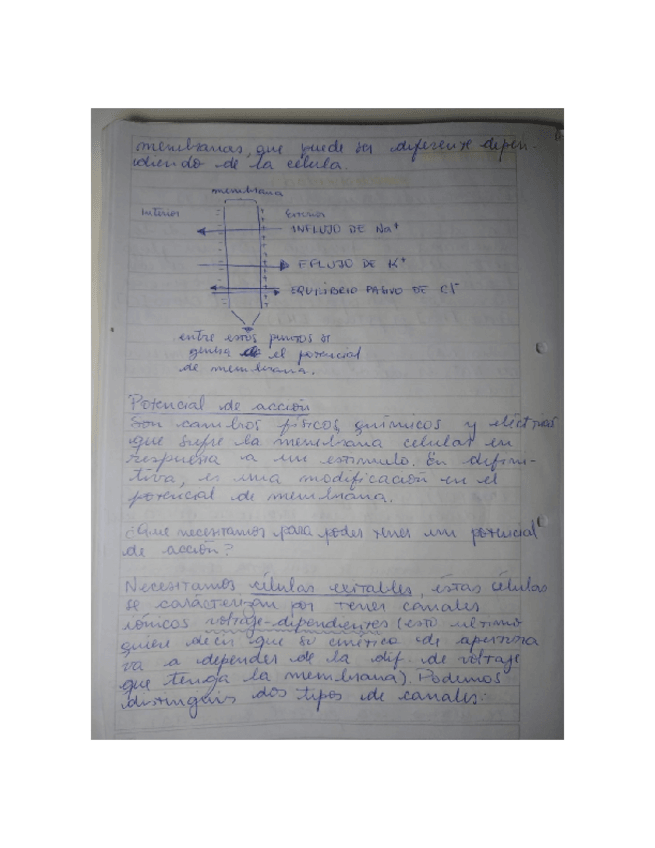 membranas, que puede ser diferente depen-
diendo de la célula.
membrana
Interior
Exterior
INFLUJO DE Na+
EFLUJO DE K+
EQUILIBRIO PASIVO DE Cl-
entre estos puntos se
genera el potencial
de membrana.
Potencial de acción
Son cambios físicos, químicos y eléctricos
que sufre la membrana celular en
respuesta a un estimulo. En defini-
tiva, es una modificación en el
potencial de membrana.
¿Que necesitamos para poder tener un potencial
de acción?
Necesitamos células exitables, estas células
se carácterizan por tener canales
iónicos voltaje-dependientes (esto ultimo
quiere decir que su cinética de apertura
va a depender de la dif. de voltaje
que tenga la membrana). Podemos
distinguir dos tipos de canales: